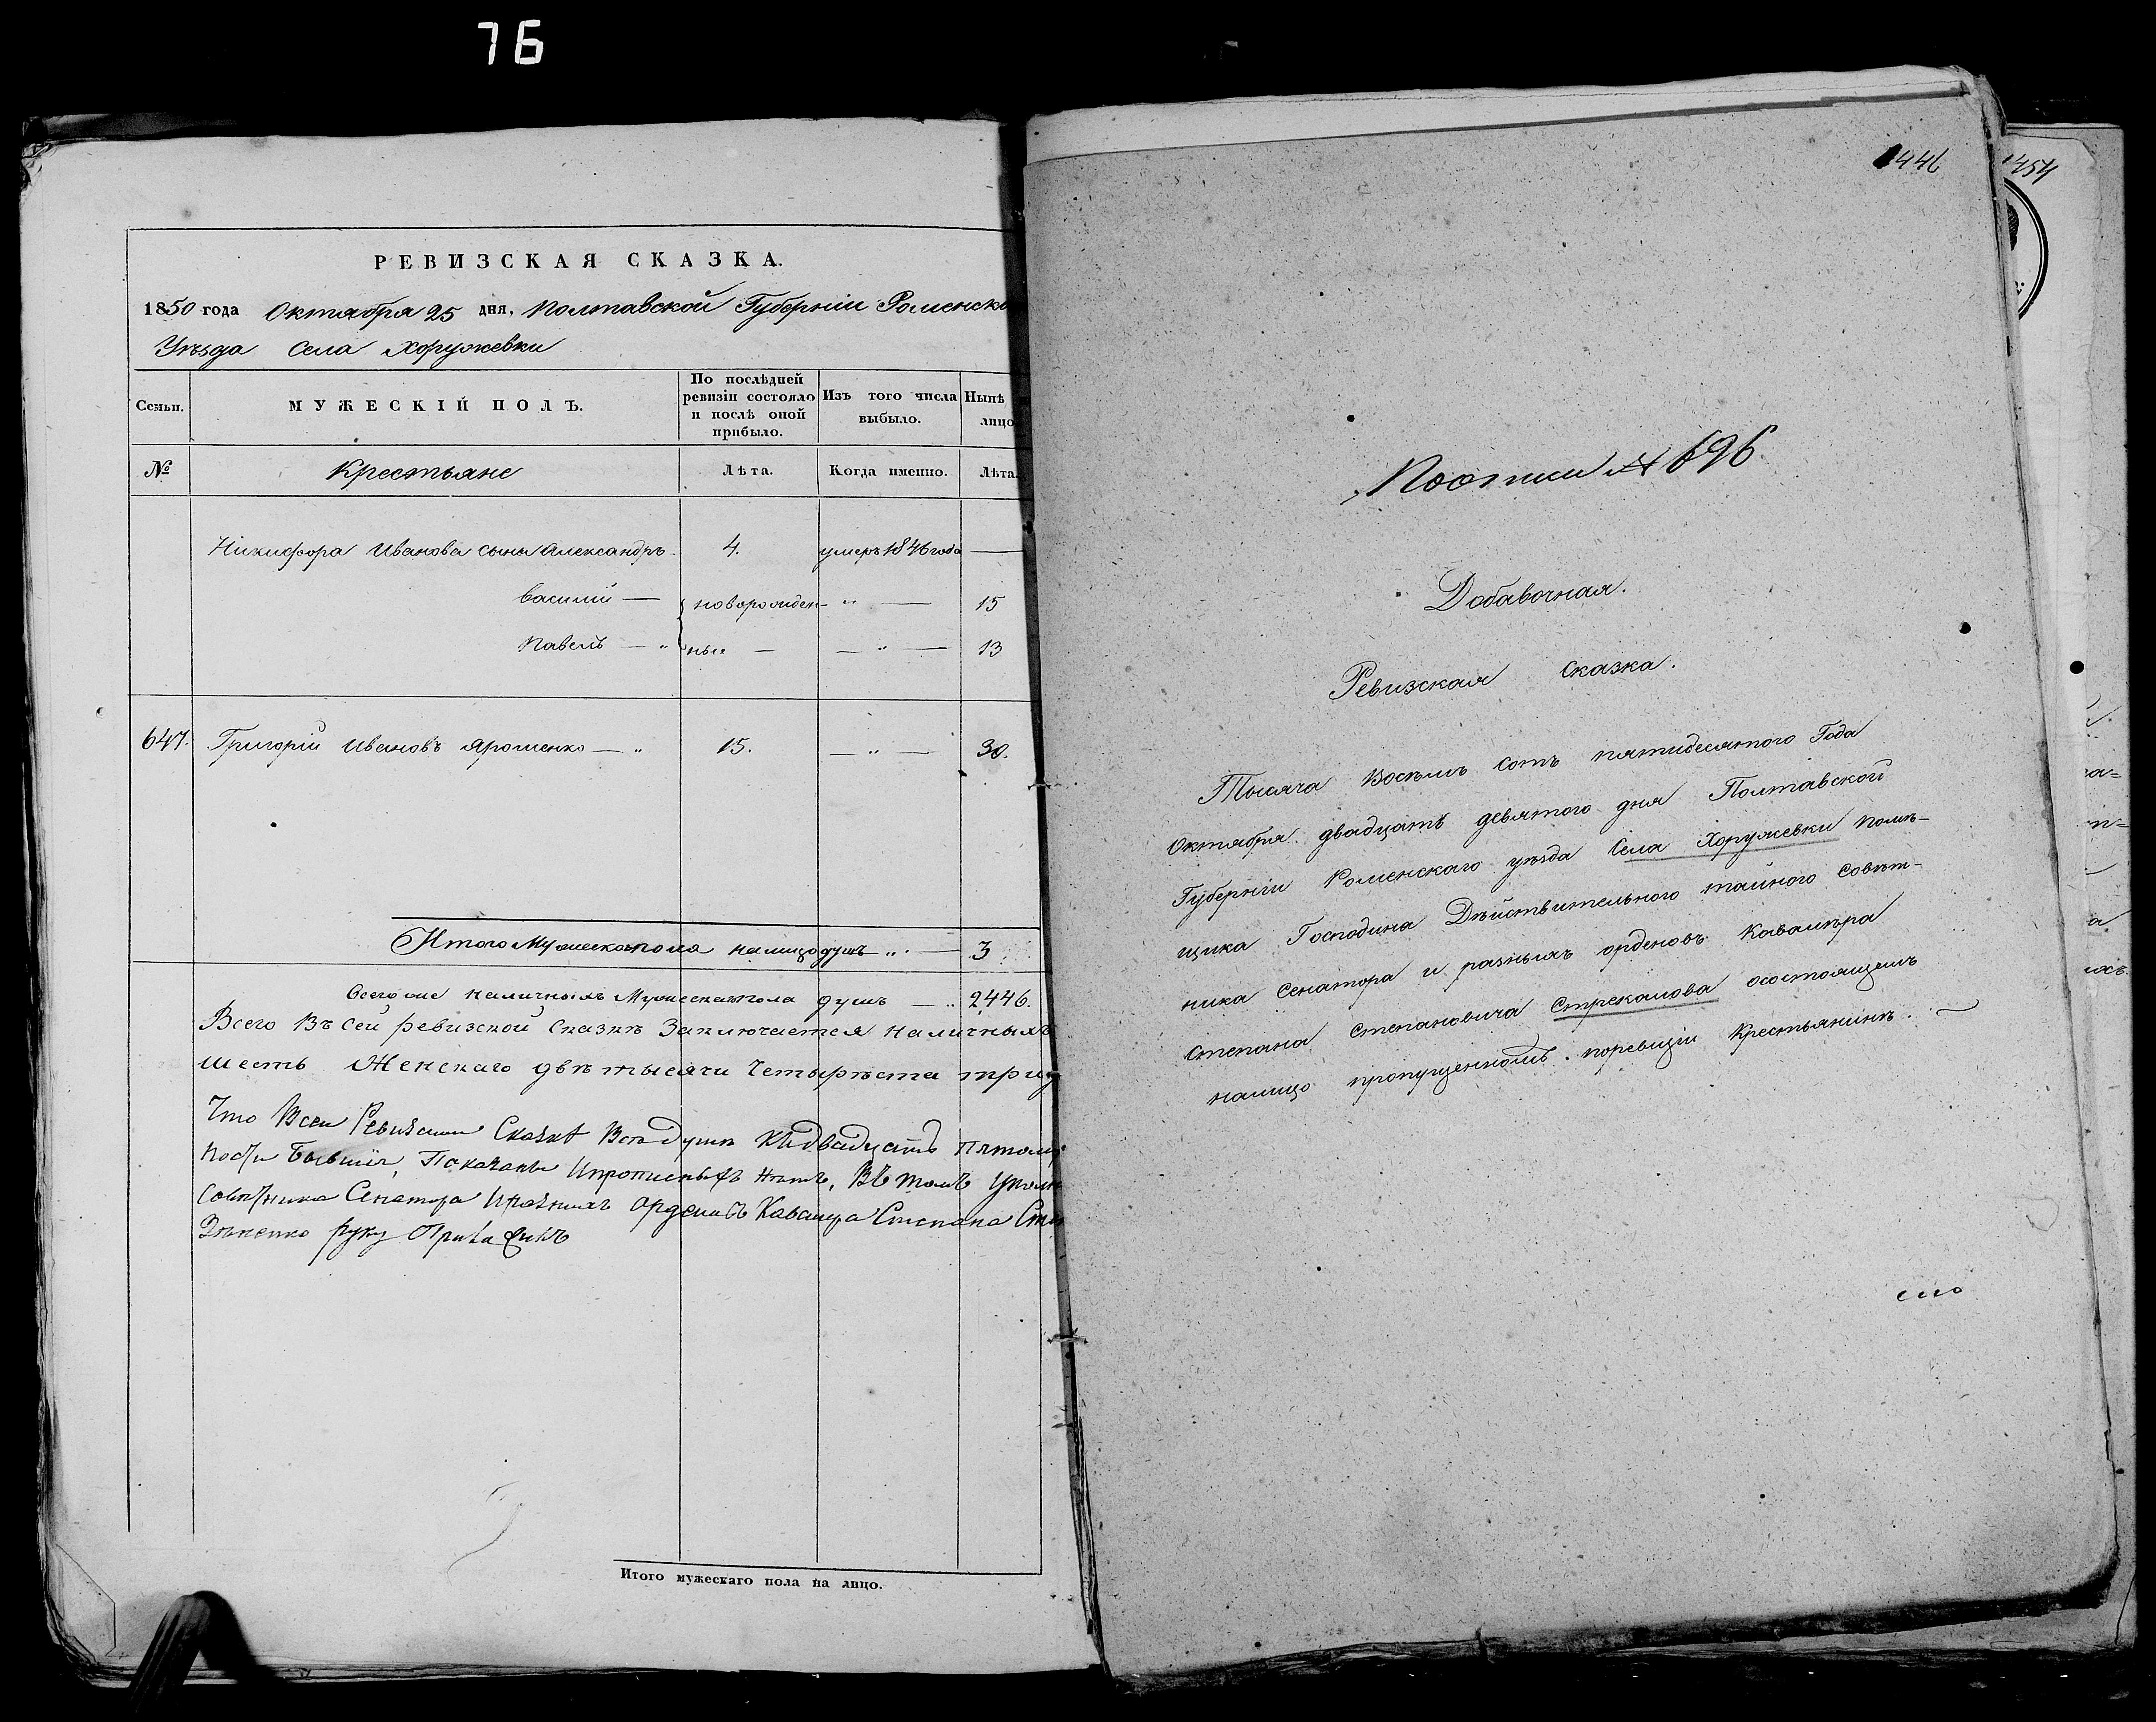 76
РЕВИЗСКАЯ СКАЗКА.
1850 года Октября 25 дня, Полтавской Губернiи Роменско
Уѣзда Села Хоружевки
Семьи. МУЖЕСКIЙ ПОЛЪ. По послѣдней ревизiи состояло и послѣ оной прибыло. Изъ того числа выбыло. Нынѣ лицо
№ Крестьяне Лѣта. Когда именно. Лѣта.
Никифора Иванова сыны Александръ 4. умеръ 1846 года —
Василий — новорожден- " — 15
Павелъ — " ные — — " — 13
647. Григорiй Ивановъ Ярошенко — " 15. — " — 30.
Итого Мужеска пола на лицо душъ " — 3
Всего же наличныхъ Мужеска пола душъ — " 2446.
Всего Въ сей ревизской сказкѣ Заключается наличныхъ
шесть Женскаго двѣ тысячи Четыреста
Что Всеи Ревизкои Сказке Всѣ душе двадцать Пятому
Показаны Ипрописныхъ Нѣтъ, Въ томъ
Совѣтника Сенатора Иразныхъ Орденовъ Кавалера Степана
руку Приложилъ
Итого мужескаго пола на лицо.
1446
1454
№ 696
Добавочная.
Ревизская сказка.
Тысяча Восемь сотъ пятидесятого Года
Октября двадцать девятого дня Полтавской
Губернiи Роменскаго уѣзда Села Хоружевки помѣ-
щика Господина Дѣйствительного тайного Совѣт-
ника Сенатора и разныхъ орденовъ Кавалѣра
Степана Степановича Стрекалова осостоящемъ
налицо пропущенномъ поревизiи Крестьянинѣ. —